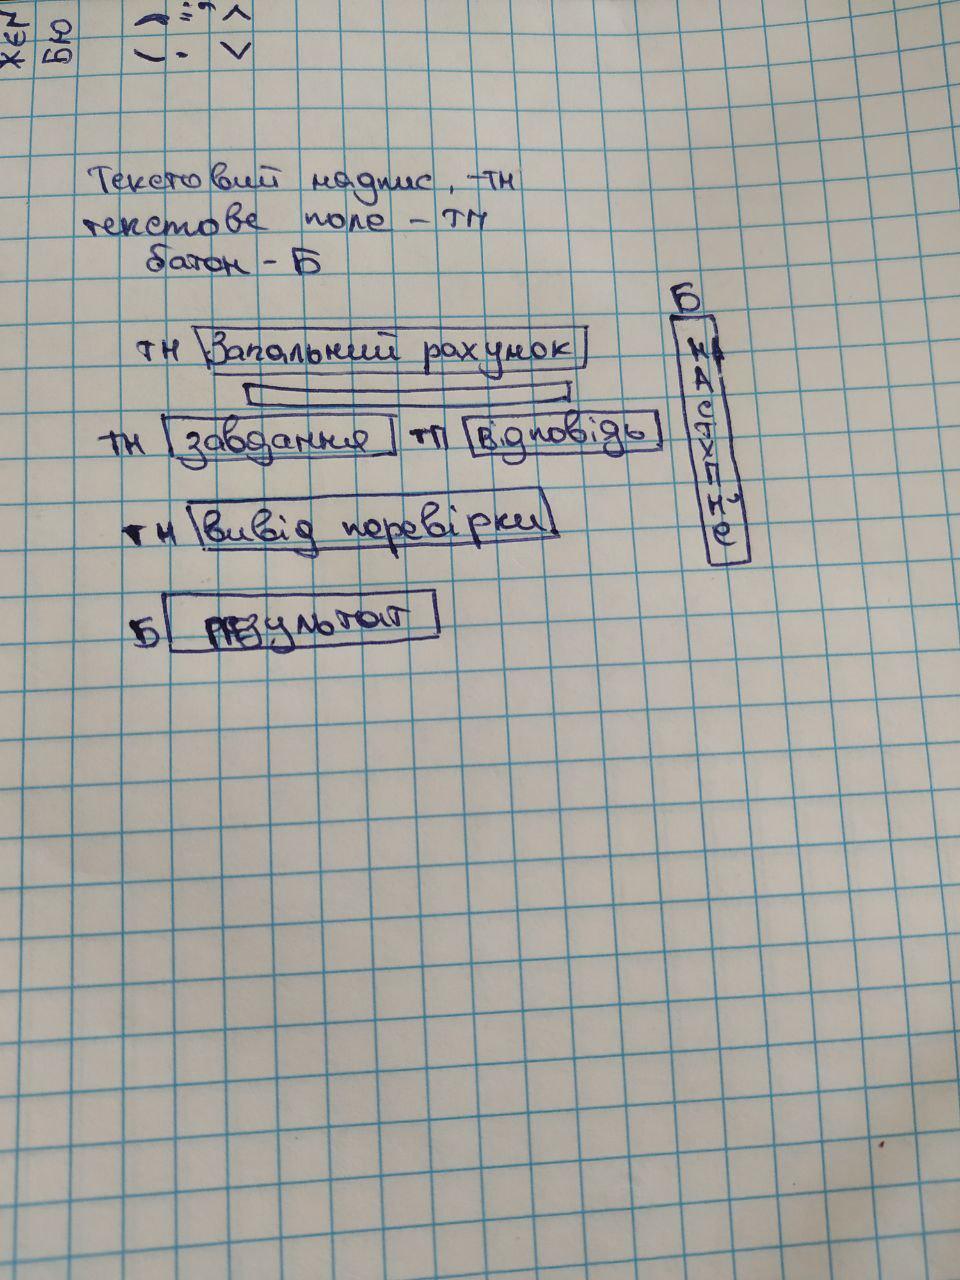 ЖЕМ
БЮ
Текстовий надпис, -тн
текстове поле - тп
батон - Б
Б
тн Запальний рахунок
тн завдання тп відповідь
тн вивід перевірки
Б результат
наступне